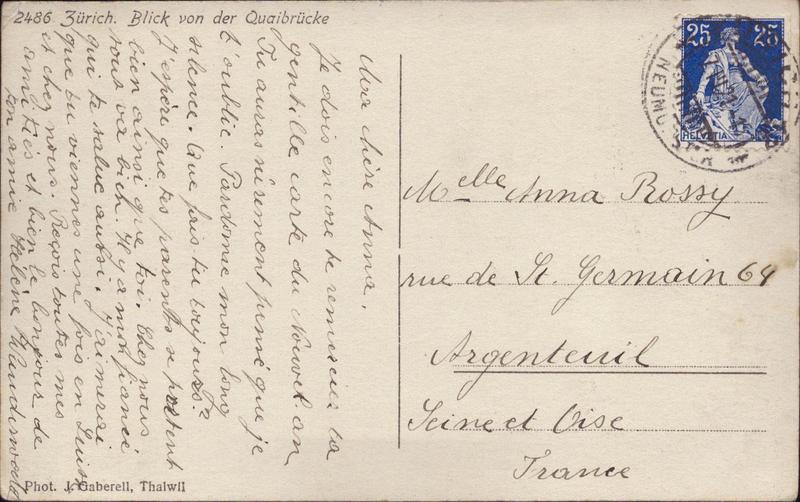 2486 Zürich. Blick von der Quaibrücke
Ma chère Anna,
Je dois encore te remercier ta
gentille carte du Nouvel an
Tu auras sûrement pensé que je
t'oublie. Pardonne mon long
silence. Que fais tu toujours?
J'espère que tes parents se portent
bien ainsi que toi. Chez nous
tous va bien. Il y a mon fiancé
qui te salue aussi. J'aimerai
que tu viennes une fois en Suisse
et chez nous. Reçois toutes mes
amitiés et bien le bonjour de
ton amie Hélène
Phot. J. Gaberell, Thalwil
25 25
HELVETIA
NEUMÜNSTER
Melle Anna Rossy
rue de St. Germain 64
Argenteuil
Seine et Oise
France